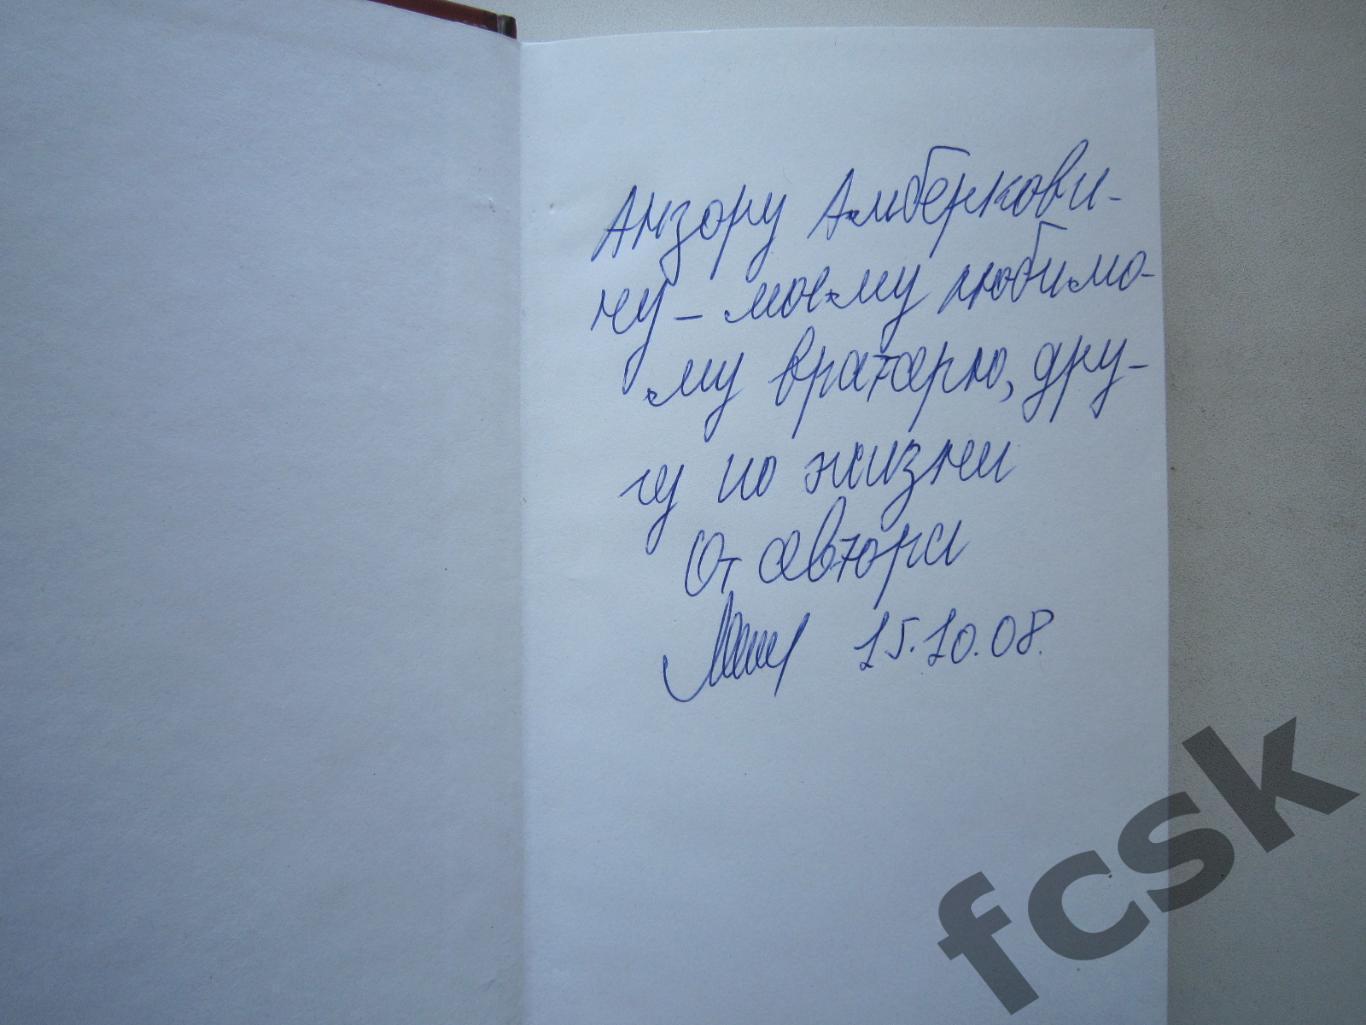 Анзору Амберкови-
чу – моему любимо-
му вратарю, дру-
гу по жизни
От автора
15.10.08.
fcsk